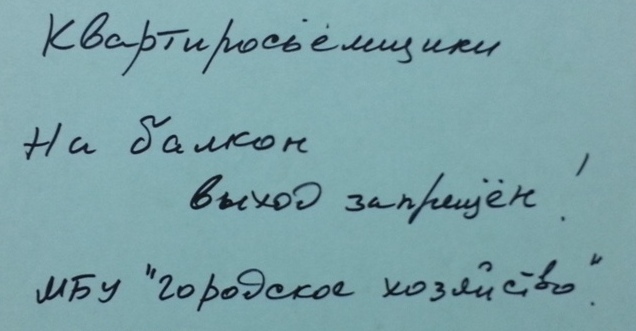 Квартиросъёмщики
На балкон
выход запрещён!
МБУ "городское хозяйство".